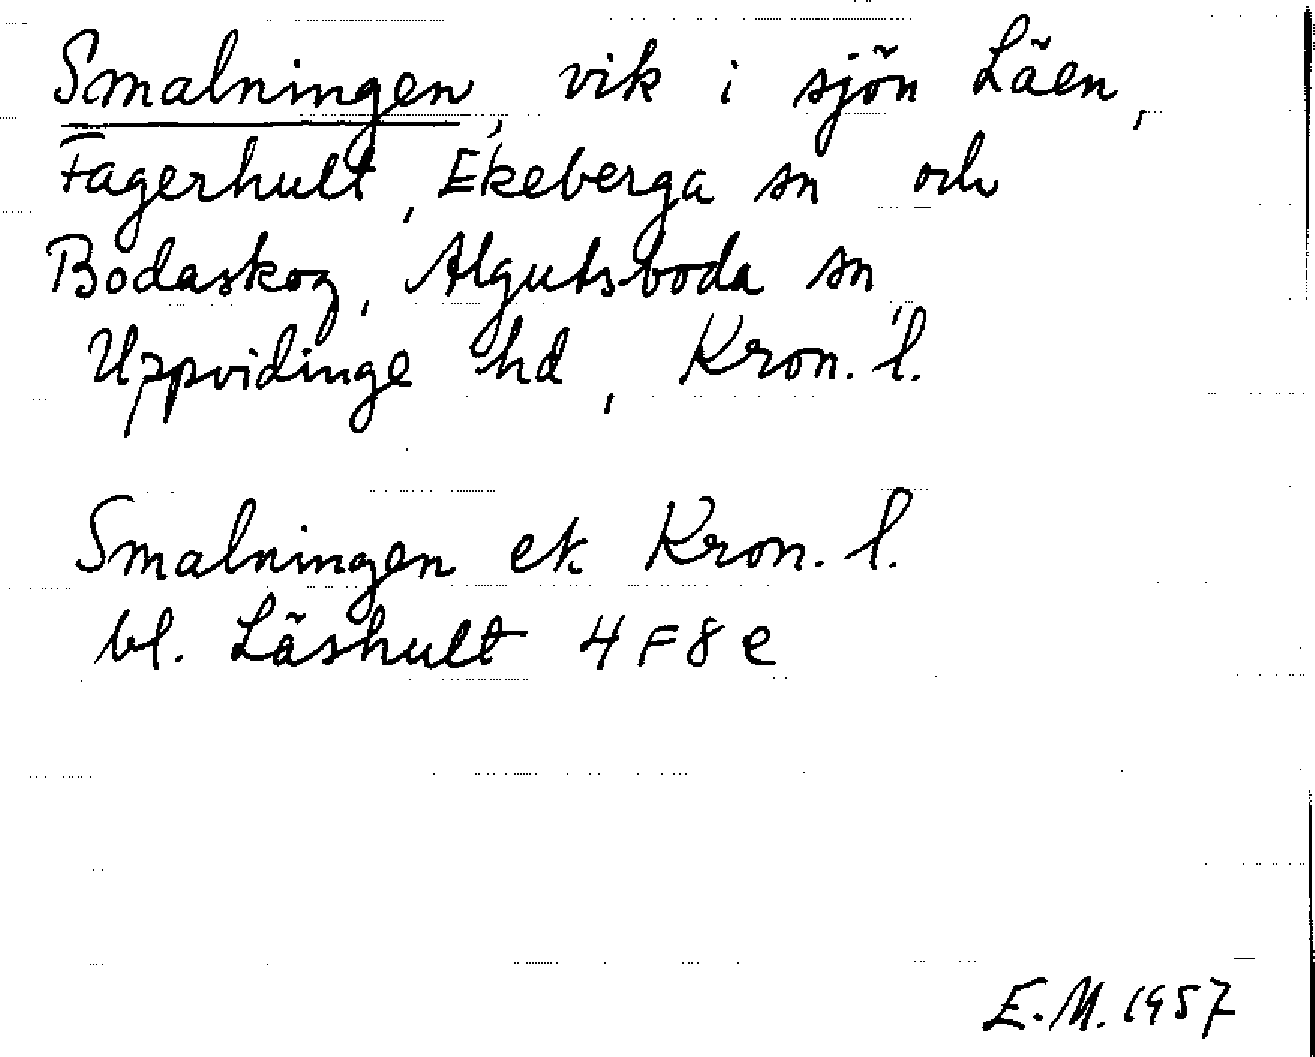 Smalningen, vik i sjön Läen,
Fagerhult, Ekeberga sn och
Bodaskog, Algutsboda sn,
Uppvidinge hd, Kron. l.
Smalningen ek Kron. l.
bl. Läshult 4F8e
E.M. 1957